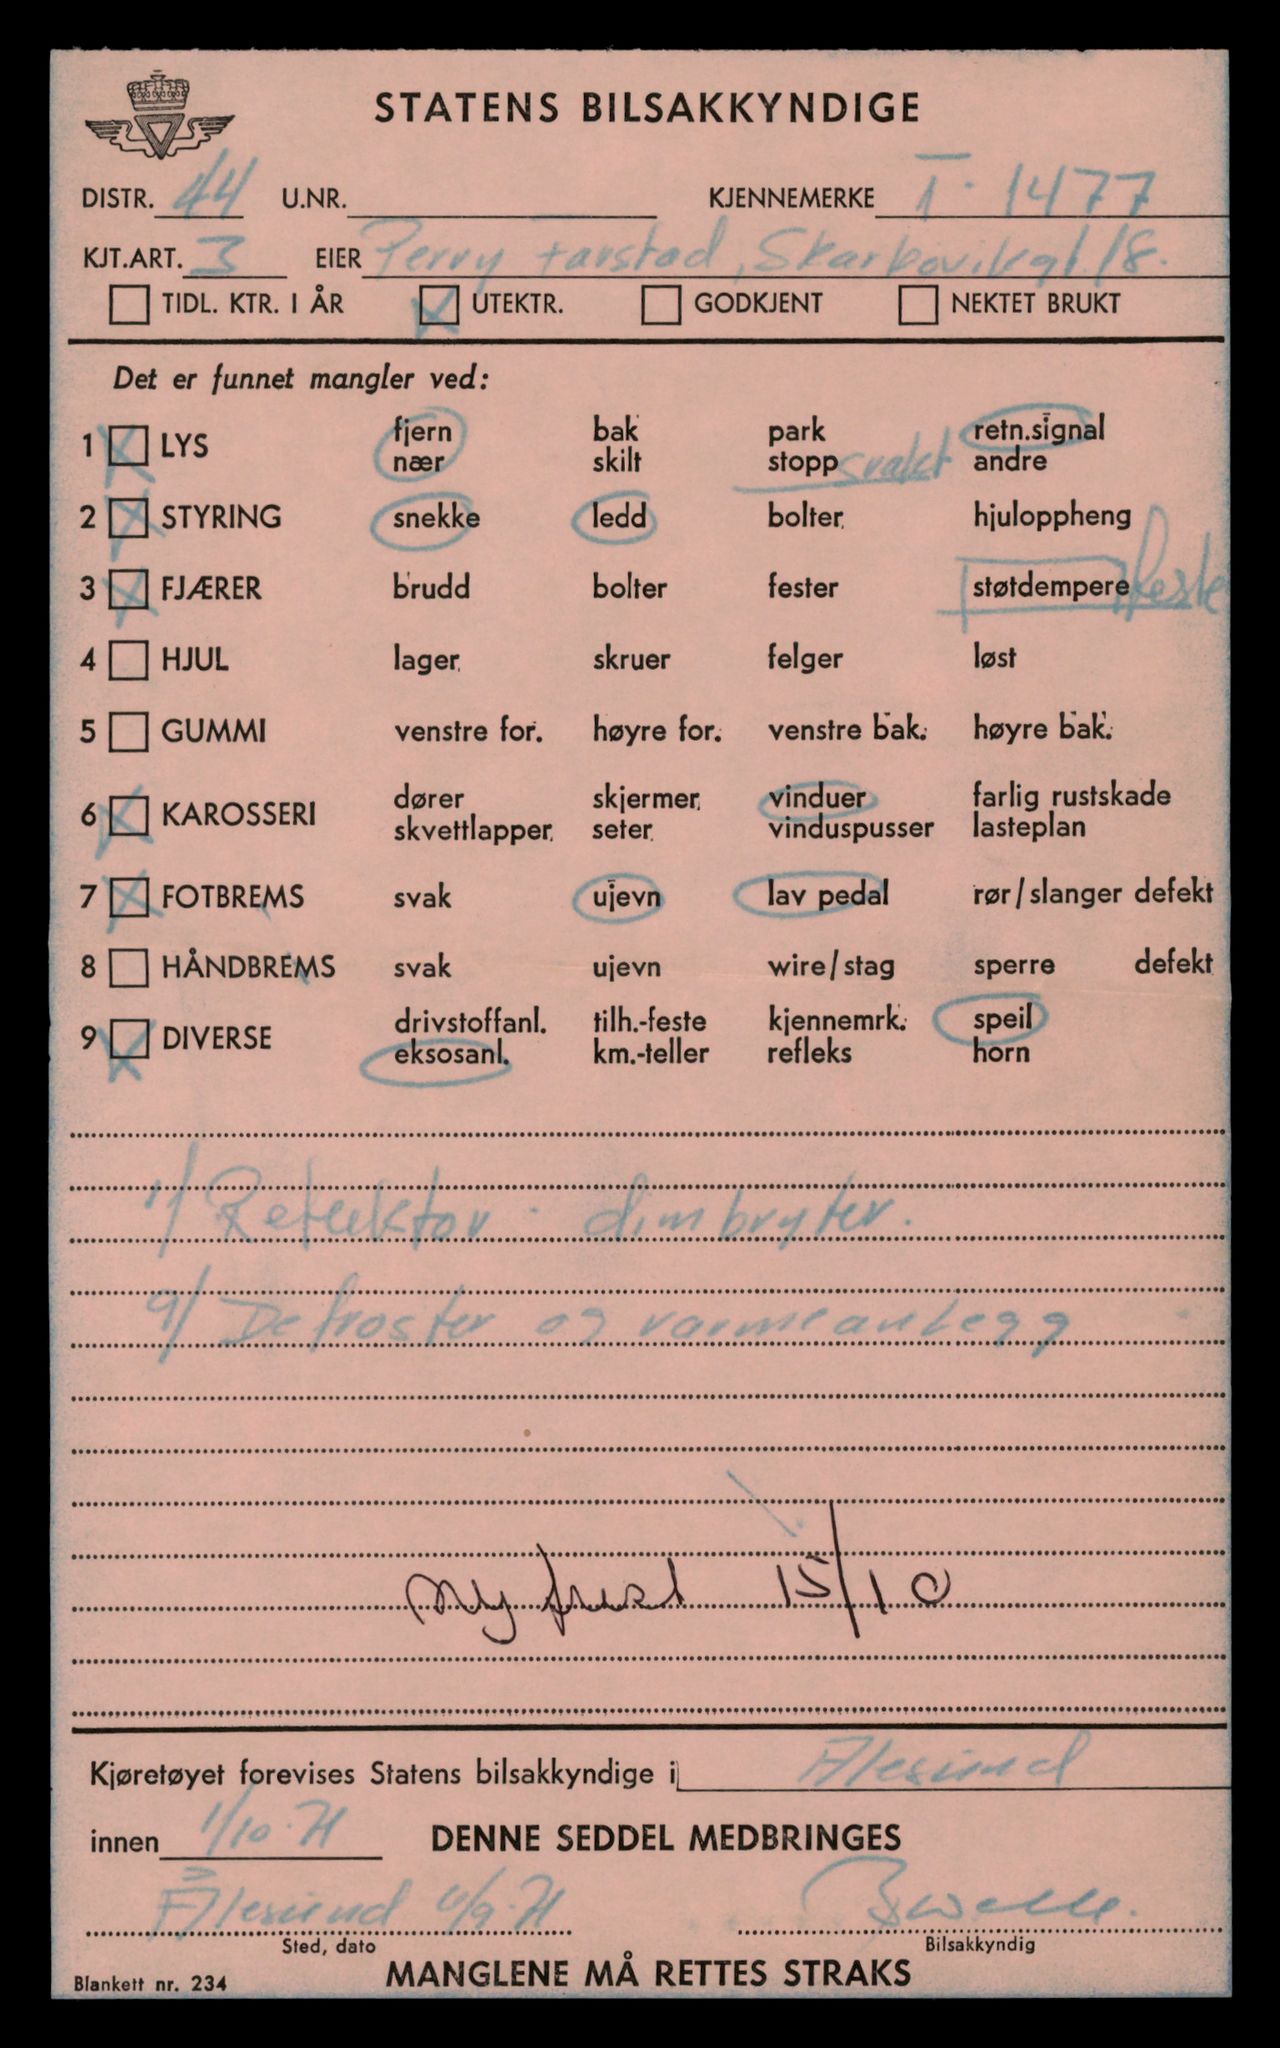 STATENS BILSAKKYNDIGE
DISTR. 44 U.NR. KJENNEMERKE T-1477
KJT.ART. 3 EIER Perry Farstad, Skarbøvikgt. 18.
TIDL. KTR. I ÅR UTEKTR. GODKJENT NEKTET BRUKT
Det er funnet mangler ved:
1 LYS fjern bak park retn.signal
nær skilt stopp svakt andre
2 STYRING snekke ledd bolter hjuloppheng
3 FJÆRER brudd bolter fester støtdempere feste
4 HJUL lager skruer felger løst
5 GUMMI venstre for. høyre for. venstre bak. høyre bak.
6 KAROSSERI dører skjermer vinduer farlig rustskade
skvettlapper seter vinduspusser lasteplan
7 FOTBREMS svak ujevn lav pedal rør/slanger defekt
8 HÅNDBREMS svak ujevn wire/stag sperre defekt
9 DIVERSE drivstoffanl. tilh.-feste kjennemrk. speil
eksosanl. km.-teller refleks horn
1/ Reflektor - dimbryter.
9/ Defroster og varmeanlegg
Ny frist 15/10
Kjøretøyet forevises Statens bilsakkyndige i Ålesund
innen 1/10-71 DENNE SEDDEL MEDBRINGES
Ålesund /9-71
Sted, dato Bilsakkyndig
Blankett nr. 234 MANGLENE MÅ RETTES STRAKS